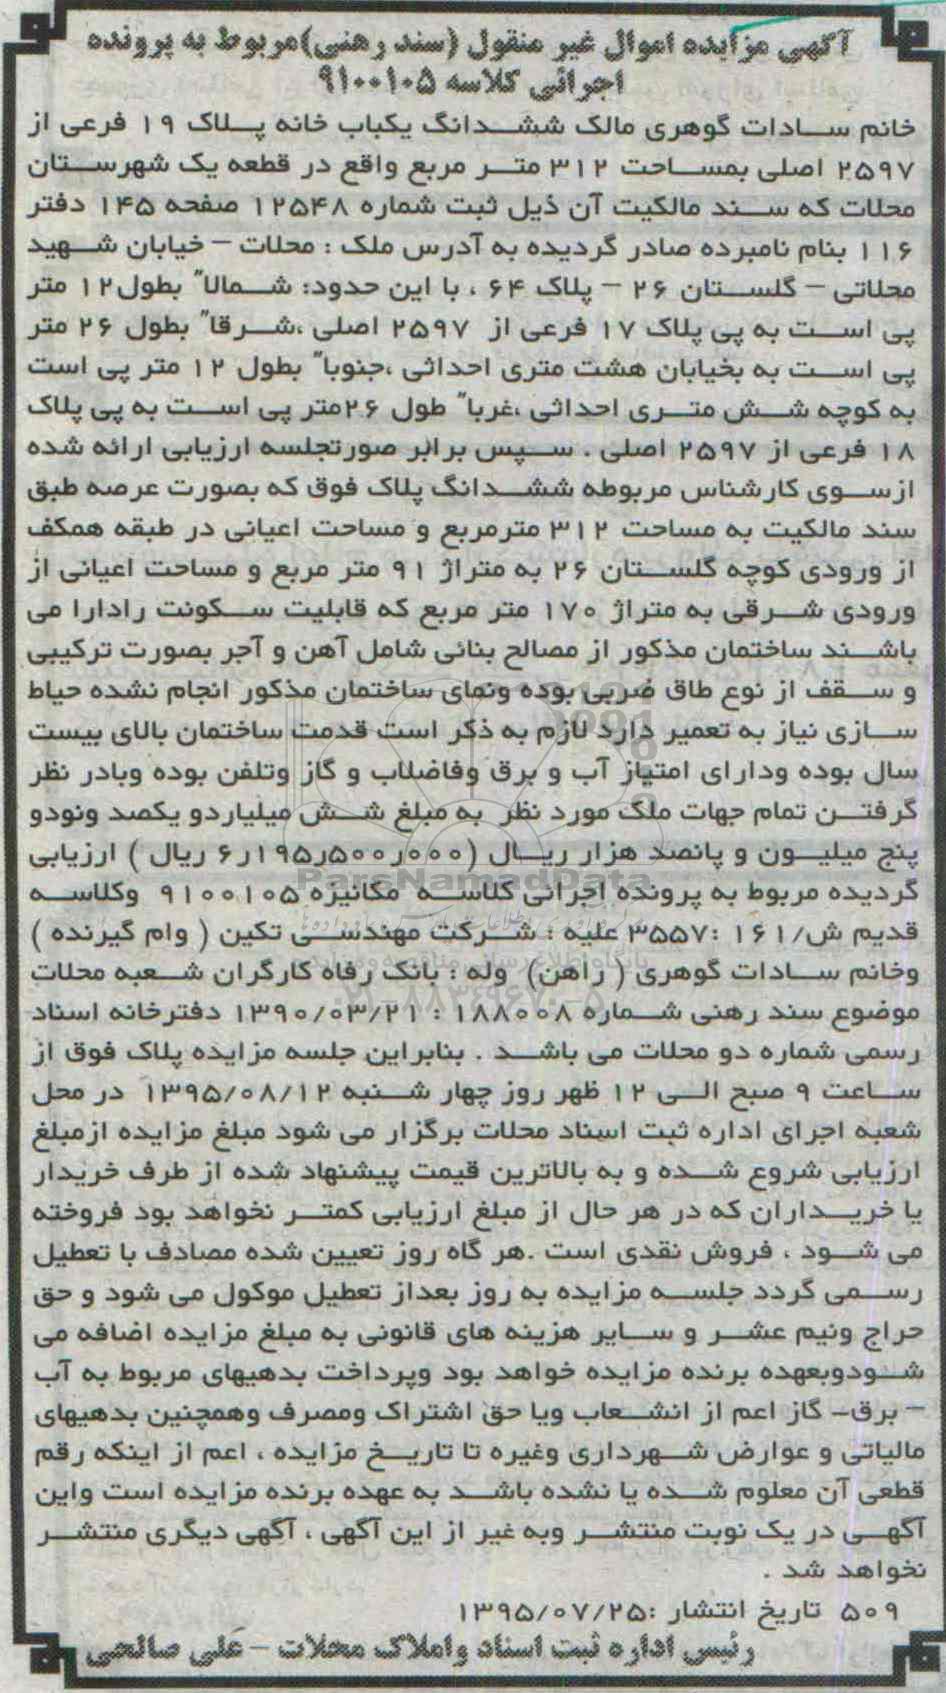 آگهی مزایده اموال غیر منقول (سند رهنی)مربوط به پرونده
اجرائی کلاسه ۹۱۰۰۱۰۵
خانم سادات گوهری مالک ششدانگ یکباب خانه پلاک ۱۹ فرعی از
۲۵۹۷ اصلی بمساحت ۳۱۲ متر مربع واقع در قطعه یک شهرستان
محلات که سند مالکیت آن ذیل ثبت شماره ۱۲۵۴۸ صفحه ۱۴۵ دفتر
۱۱۶ بنام نامبرده صادر گردیده به آدرس ملک : محلات – خیابان شهید
محلاتی – گلستان ۲۶ – پلاک ۶۴ ، با این حدود: شمالا" بطول۱۲ متر
پی است به پی پلاک ۱۷ فرعی از ۲۵۹۷ اصلی ،شرقا" بطول ۲۶ متر
پی است به بخیابان هشت متری احداثی ،جنوبا" بطول ۱۲ متر پی است
به کوچه شش متری احداثی ،غربا" طول ۲۶متر پی است به پی پلاک
۱۸ فرعی از ۲۵۹۷ اصلی . سپس برابر صورتجلسه ارزیابی ارائه شده
ازسوی کارشناس مربوطه ششدانگ پلاک فوق که بصورت عرصه طبق
سند مالکیت به مساحت ۳۱۲ مترمربع و مساحت اعیانی در طبقه همکف
از ورودی کوچه گلستان ۲۶ به متراژ ۹۱ متر مربع و مساحت اعیانی از
ورودی شرقی به متراژ ۱۷۰ متر مربع که قابلیت سکونت رادارا می
باشند ساختمان مذکور از مصالح بنائی شامل آهن و آجر بصورت ترکیبی
و سقف از نوع طاق ضربی بوده ونمای ساختمان مذکور انجام نشده حیاط
سازی نیاز به تعمیر دارد لازم به ذکر است قدمت ساختمان بالای بیست
سال بوده ودارای امتیاز آب و برق وفاضلاب و گاز وتلفن بوده وبادر نظر
گرفتن تمام جهات ملک مورد نظر به مبلغ شش میلیاردو یکصد ونودو
پنج میلیون و پانصد هزار ریال (۶ر۱۹۵ر۵۰۰ر۰۰۰ ریال ) ارزیابی
گردیده مربوط به پرونده اجرائی کلاسه مکانیزه ۹۱۰۰۱۰۵ وکلاسه
قدیم ش/۱۶۱ :۳۵۵۷ علیه : شرکت مهندسی تکین ( وام گیرنده )
وخانم سادات گوهری ( راهن) وله : بانک رفاه کارگران شعبه محلات
موضوع سند رهنی شماره ۱۸۸۰۰۸ : ۱۳۹۰/۰۳/۲۱ دفترخانه اسناد
رسمی شماره دو محلات می باشد . بنابراین جلسه مزایده پلاک فوق از
ساعت ۹ صبح الی ۱۲ ظهر روز چهار شنبه ۱۳۹۵/۰۸/۱۲ در محل
شعبه اجرای اداره ثبت اسناد محلات برگزار می شود مبلغ مزایده ازمبلغ
ارزیابی شروع شده و به بالاترین قیمت پیشنهاد شده از طرف خریدار
یا خریداران که در هر حال از مبلغ ارزیابی کمتر نخواهد بود فروخته
می شود ، فروش نقدی است .هر گاه روز تعیین شده مصادف با تعطیل
رسمی گردد جلسه مزایده به روز بعداز تعطیل موکول می شود و حق
حراج ونیم عشر و سایر هزینه های قانونی به مبلغ مزایده اضافه می
شودوبعهده برنده مزایده خواهد بود وپرداخت بدهیهای مربوط به آب
– برق– گاز اعم از انشعاب ویا حق اشتراک ومصرف وهمچنین بدهیهای
مالیاتی و عوارض شهرداری وغیره تا تاریخ مزایده ، اعم از اینکه رقم
قطعی آن معلوم شده یا نشده باشد به عهده برنده مزایده است واین
آگهی در یک نوبت منتشر وبه غیر از این آگهی ، آگهی دیگری منتشر
نخواهد شد .
۵۰۹ تاریخ انتشار :۱۳۹۵/۰۷/۲۵
رئیس اداره ثبت اسناد واملاک محلات – علی صالحی
ParsNamadData
پایگاه اطلاع رسانی مناقصه و مزایده
۰۲۱-۸۸۳۴۹۶۷۰-۵